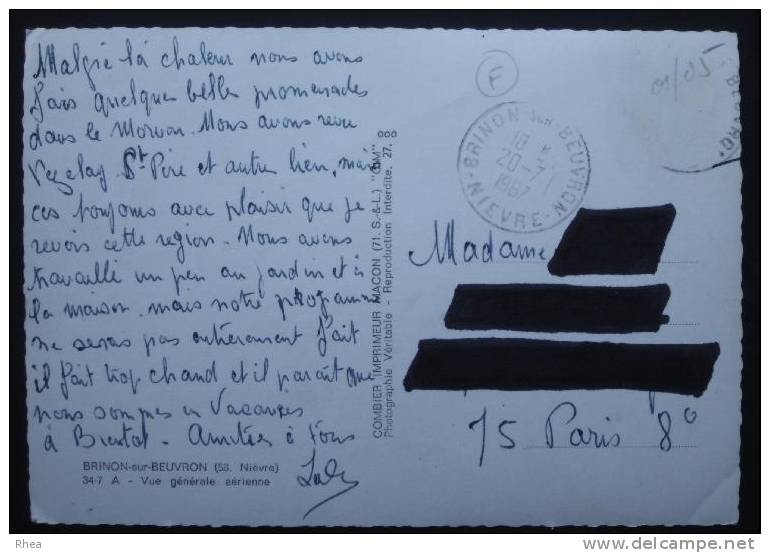 Malgré la chaleur nous avons
fais quelques belles promenades
dans le Morvan. Nous avons revu
Vezelay St Père et autre lieu, mais
ces toujours avec plaisir que je
revois cette region. Nous avons
travaillé un peu au jardin et à
la maison. mais notre programme
ne seras pas entièrement fait
il fait trop chaud et il parait que
nous sommes en Vacances
à Bientot. Amitiés à Tous
BRINON-sur-BEUVRON (58. Nièvre)
34-7 A - Vue générale aérienne
COMBIER IMPRIMEUR MACON (71. S.-&-L.) "CIM"
Photographie Véritable - Reproduction Interdite. 27.
F
BRINON SUR BEUVRON
20-7
1967
NIEVRE
01/05
Madame
75 Paris 8°
Rhea
www.delcampe.net